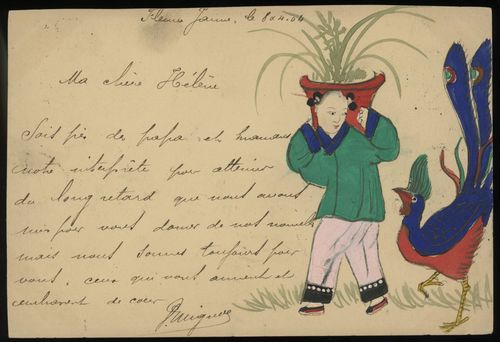 Fleuve Jaune, le 8 x 4.04
Ma chère Hélène
Sois près de papa et maman
notre interprète pour atténuer
du long retard que nous avons
mis pour vous donner de nos nouvelles
mais nous sommes toujours pour
vous, ceux qui vous aiment et
embrassent de cœur